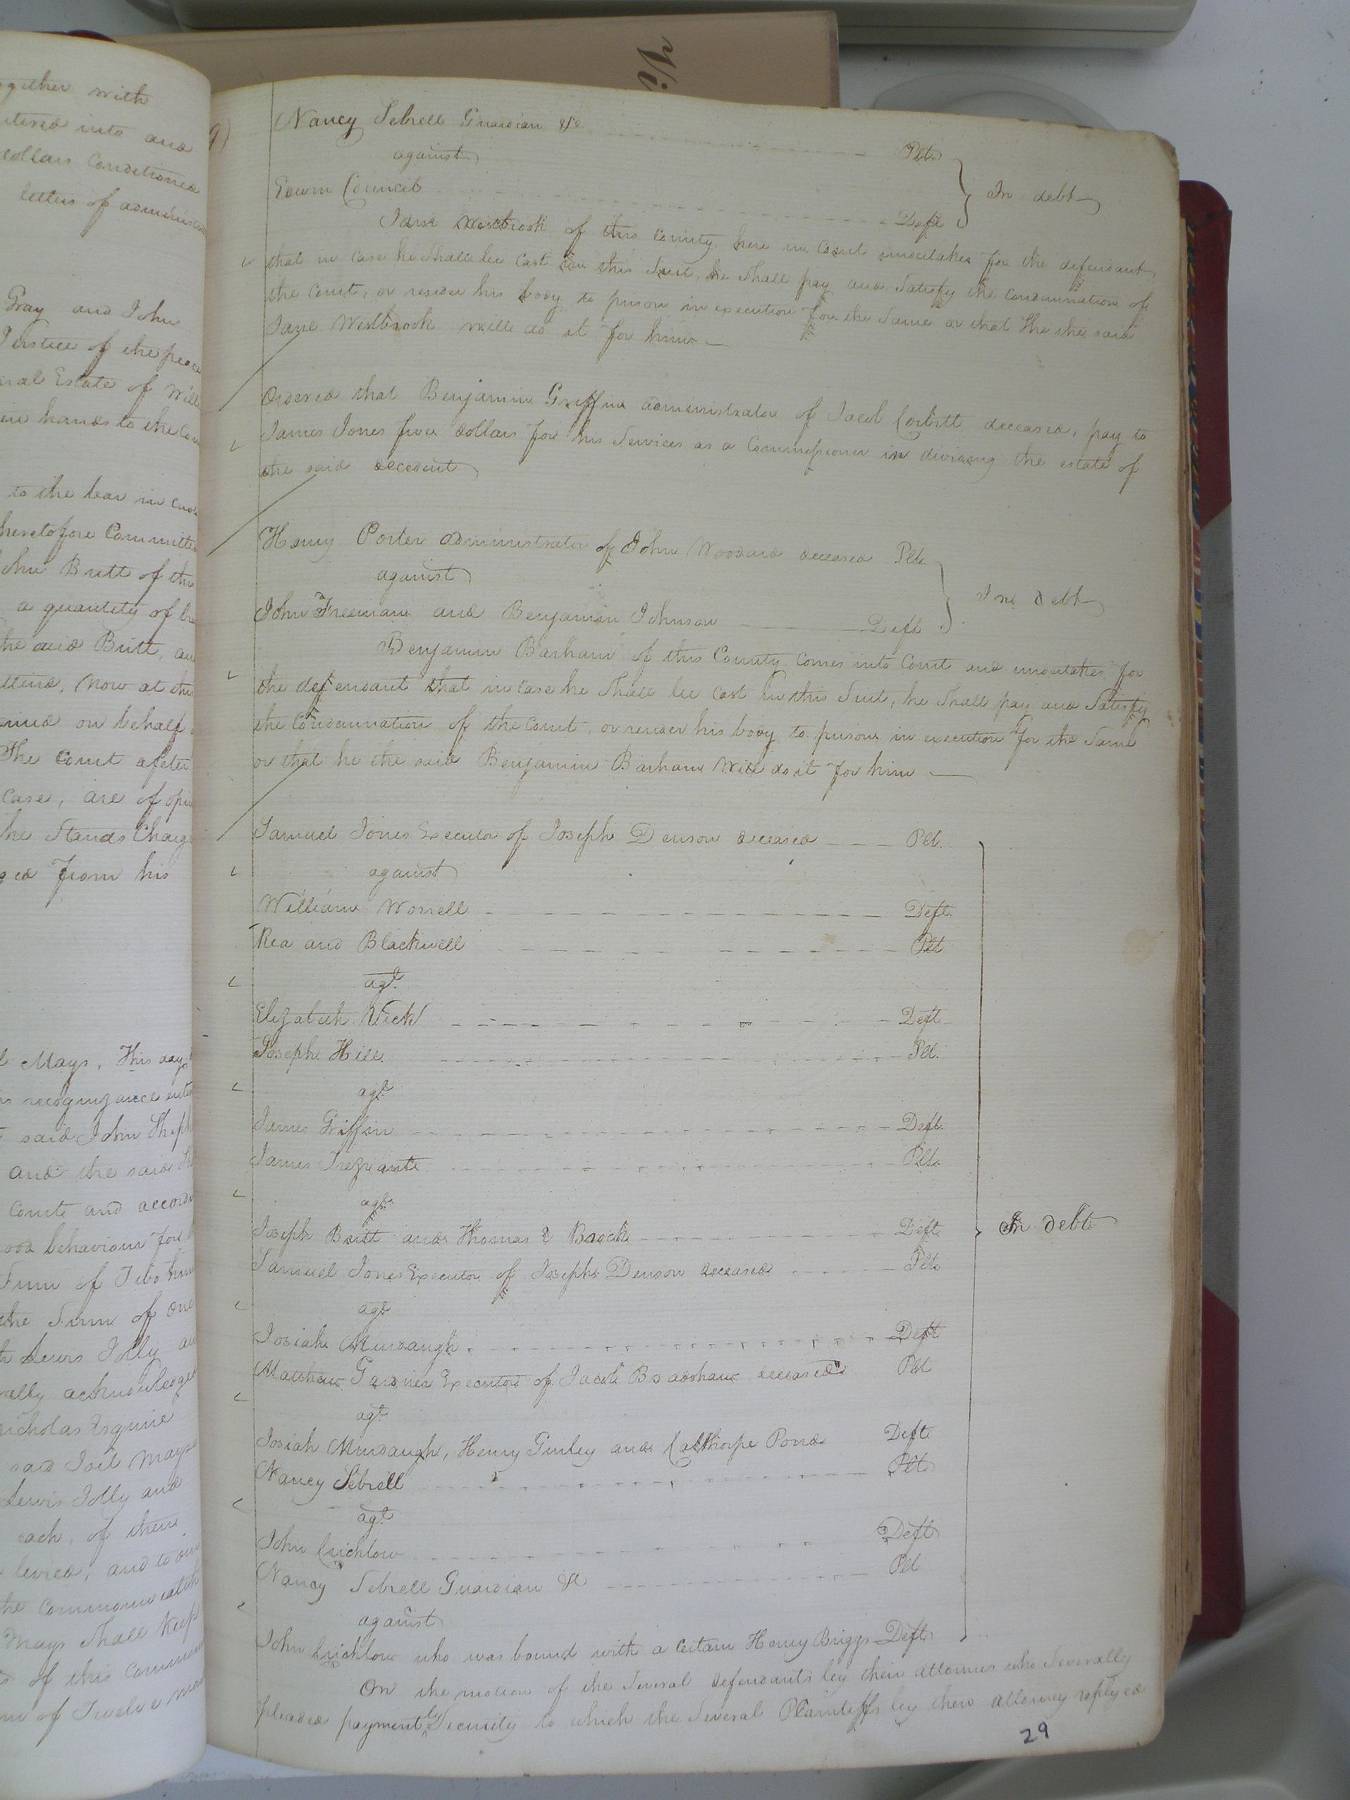 ogether with
ntered into and
dollars Conditioned
letters of administra
Gray and John
Justice of the peace
nal Estate of Will
eir hands to the Com
to the bar in cus
heretofore Committed
John Britt of this
a quantity of
the said Britt, an
ttend, Now at this
and on behalf
The Court after
case, are of opin
he Stands Charg
ed from his
l Mays, This day
recognizance ente
said John Steph
and the said
Court and accord
ood behaviour for
Sum of Two hun
the Sum of one
Lewis Jolly an
rally acknowledged
Nicholas Esquire
said Joel Mays
Lewis Jolly and
each, of their
levied, and to our
the Commonwealth
Mays Shall Keep
s of this Common
m of Twelve mon
9)
Nancy Sebrell Guardian &c Plt.
against
Edwin Council Deft
In debt
Jane Westbrook of this County here in Court undertakes for the defendant
that in case he Shall be cast in this Suit, he Shall pay and Satisfy the Condemnation of
the Court, or render his body to prison in execution for the Same or that She the said
Jane Westbrook will do it for him
Ordered that Benjamin Griffin administrator of Jacob Corbitt deceased, pay to
James Jones five dollars for his Services as a Commissioner in dividing the estate of
the said decedent
Henry Porter administrator of John Woodard deceased Plt.
against
John Freeman and Benjamin Johnson Deft
In Debt
Benjamin Barham of this County Comes into Court and undertakes for
the defendant that in case he Shall be cast in this Suit, he Shall pay and Satisfy
the Condemnation of the Court, or render his body to prison in execution for the Same
or that he the said Benjamin Barham Will do it for him
Samuel Jones Executor of Joseph Denson deceased Plt.
against
William Worrell Deft.
Rea and Blackwell Plt
agt.
Elizabeth Vick Deft
Joseph Hill Plt.
agt
James Griffin Deft
James Trezvant Plt.
agt
Joseph Britt and Thomas E Deft
In debt
Samuel Jones Executor of Joseph Denson deceased Plt.
agt
Josiah Murdaugh Deft
Matthew Gardner Executor of Jacob Bradshaw deceased Plt
agt
Josiah Murdaugh, Henry Gurley and Calthorpe Pond Deft
Nancy Sebrell Plt
agt
John Crichlow Deft
Nancy Sebrell Guardian &c Plt
against
John Crichlow who was bound with a Certain Henry Briggs Deft.
On the motion of the Several defendants by their attornies who Severally
pleaded payment by Security to which the Several Plaintiffs by their attorney replyed
29